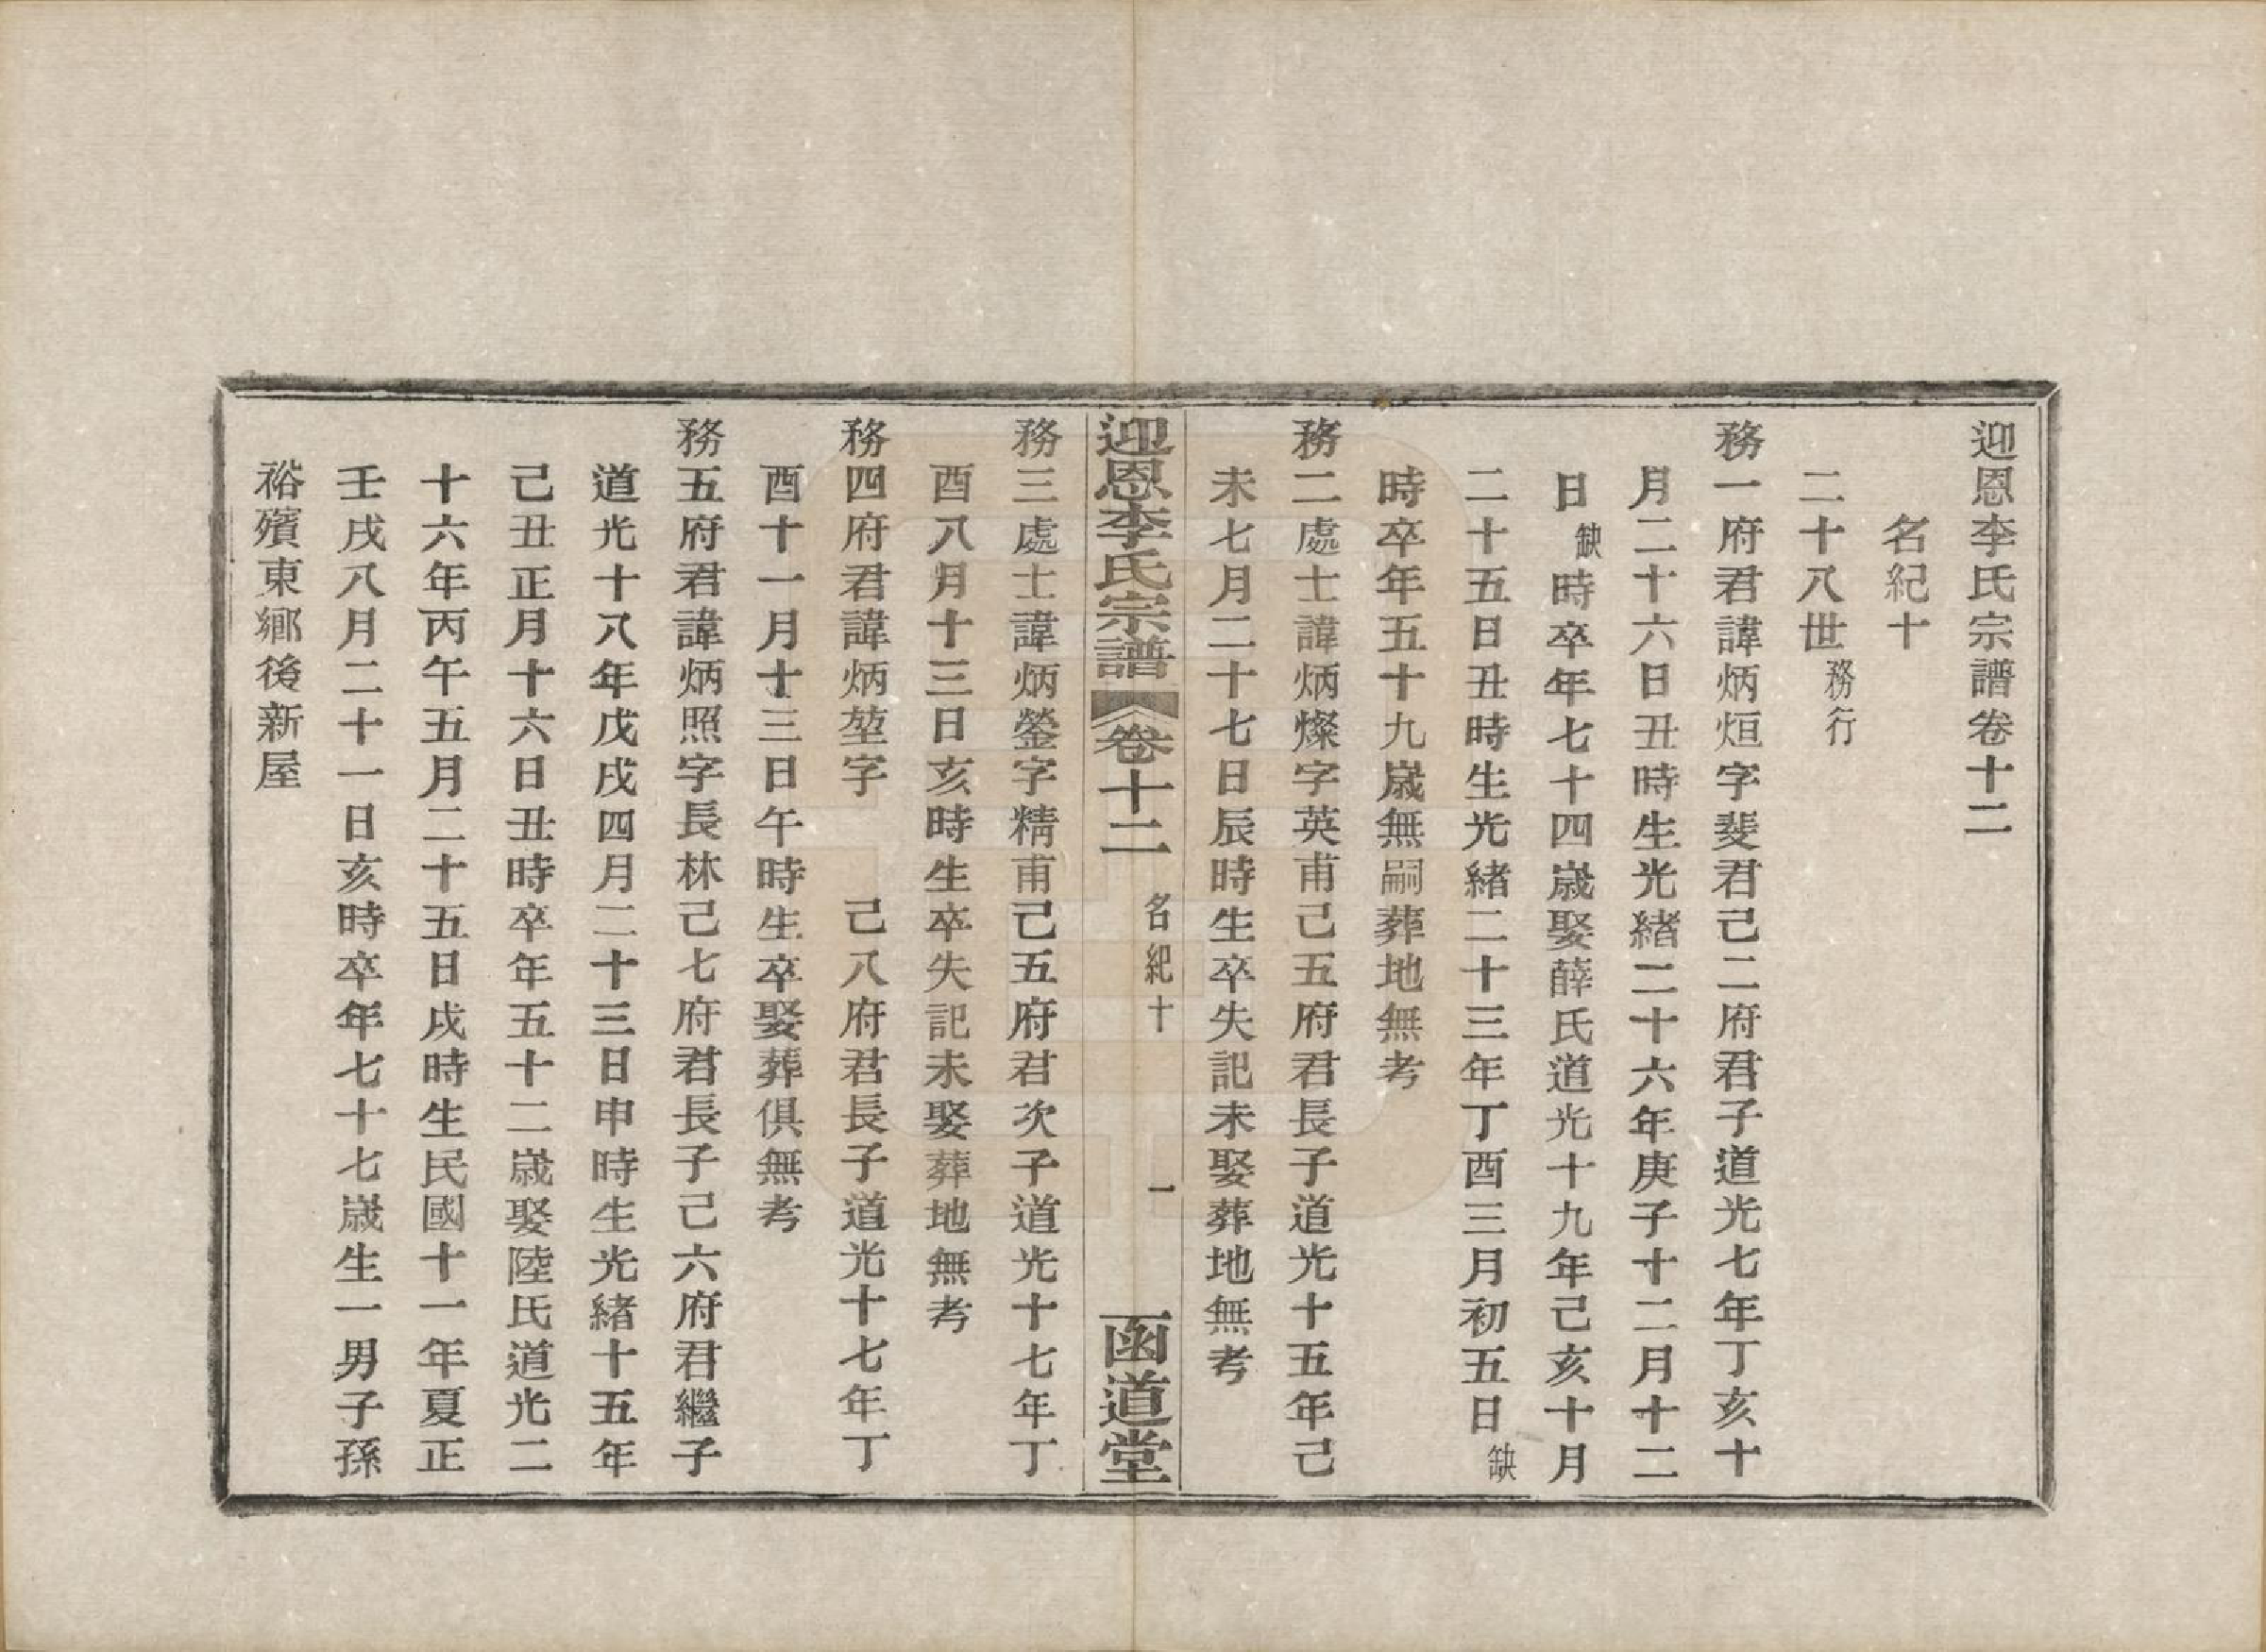 迎恩李氏宗譜卷十二
名紀十
二十八世務行
務一府君諱炳烜字斐君己二府君子道光七年丁亥十
月二十六日丑時生光緒二十六年庚子十二月十二
日缺時卒年七十四歲娶薛氏道光十九年己亥十月
二十五日丑時生光緒二十三年丁酉三月初五日缺
時卒年五十九歲無嗣葬地無考
務二處士諱炳燦字英甫己五府君長子道光十五年己
未七月二十七日辰時生卒失記未娶葬地無考
迎恩李氏宗譜 卷十二 名紀十 一 函道堂
務三處士諱炳鎣字精甫己五府君次子道光十七年丁
酉八月十三日亥時生卒失記未娶葬地無考
務四府君諱炳堃字 己八府君長子道光十七年丁
酉十一月十三日午時生卒娶葬俱無考
務五府君諱炳照字長林己七府君長子己六府君繼子
道光十八年戊戌四月二十三日申時生光緒十五年
己丑正月十六日丑時卒年五十二歲娶陸氏道光二
十六年丙午五月二十五日戌時生民國十一年夏正
壬戌八月二十一日亥時卒年七十七歲生一男子孫
裕殯東鄉後新屋